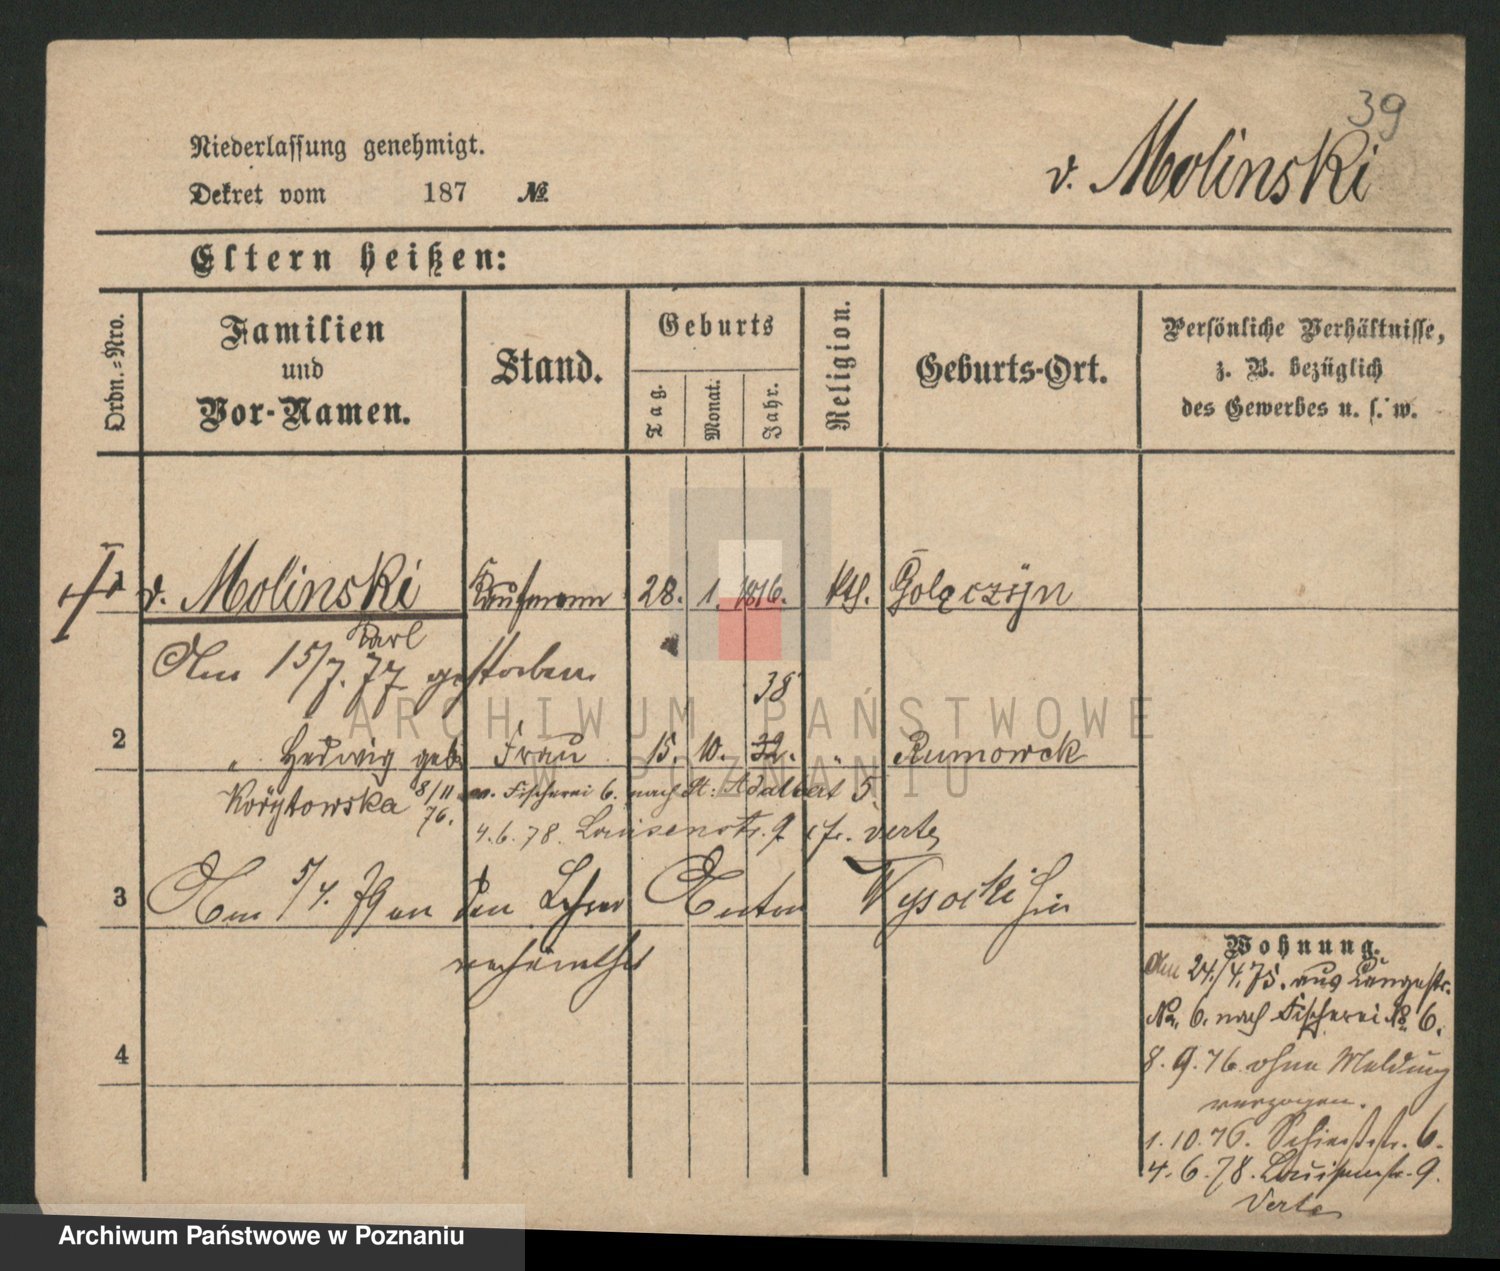 39
Niederlassung genehmigt.
v. Molinski
Dekret vom 187 №
Eltern heißen:
Ordn.=Nro.
Familien
und
Vor-Namen.
Stand.
Geburts
Tag.
Monat.
Jahr.
Religion.
Geburts-Ort.
Persönliche Verhältnisse,
z. B. bezüglich
des Gewerbes u. s. w.
1 v. Molinski Kaufmann 28. 1. 1816. kth. Golęczÿn
Karl
Am 15/7. 77 gestorben.
38
2 " Hedwig geb. Frau 15. 10. 32. " Rumowek
Korÿtowska 8/11 76. v. Fischerei 6. nach St. Adalbert 5.
4.6.78. Louisenstr. 9 cfr. verte
3 Am 5/4. 79 an den Lehrer Anton Wysocki hier
verheirathet
4
Wohnung.
Am 24./4.75. aus Langestr.
No. 6. nach Fischerei № 6.
8.9.76 ohne Meldung
verzogen.
1.10.76. 6.
4.6.78. Louisenstr. 9.
Verte
ARCHIWUM PAŃSTWOWE
W POZNANIU
Archiwum Państwowe w Poznaniu